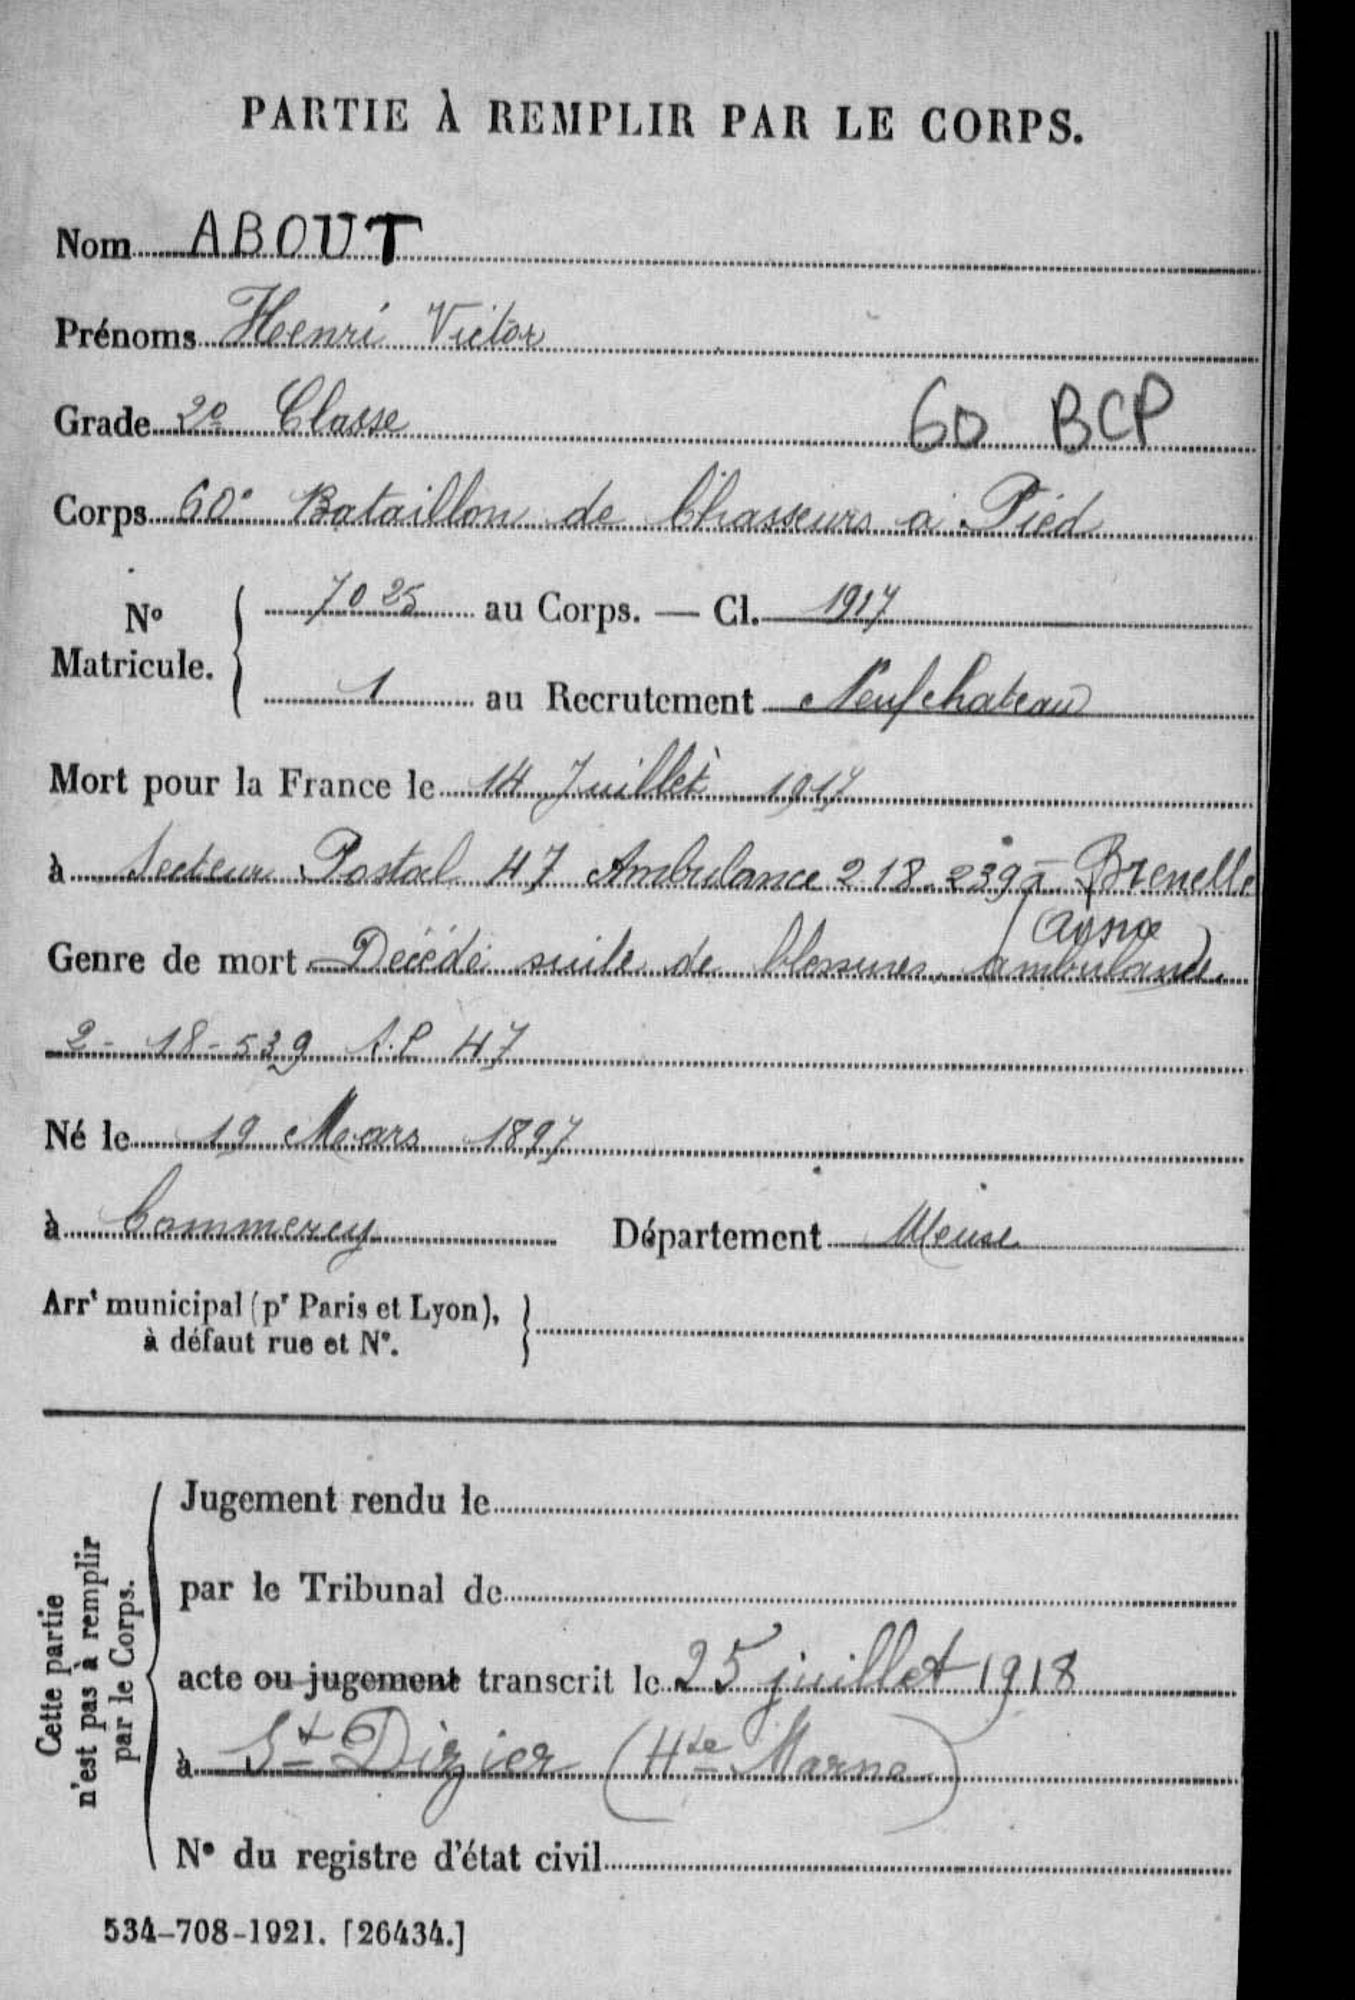 PARTIE À REMPLIR PAR LE CORPS.
Nom ABOUT
Prénoms Henri Victor
Grade 2e Classe 60 BCP
Corps 60e Bataillon de Chasseurs à Pied
No Matricule. 7025 au Corps. — Cl. 1917
1 au Recrutement Neufchateau
Mort pour la France le 14 Juillet 1917
à Secteur Postal 47 Ambulance 2 18. 239 à Brenelle
(Aisne)
Genre de mort Décédé suite de blessures ambulance
2 - 18 - 539 S.P 47
Né le 19 Mars 1897
à Commercy Département Meuse
Arrt municipal (pr Paris et Lyon),
à défaut rue et No.
Cette partie
n'est pas à remplir
par le Corps.
Jugement rendu le
par le Tribunal de
acte ou jugement transcrit le 25 juillet 1918
à St Dizier (Hte Marne)
No du registre d'état civil
534-708-1921. [26434.]